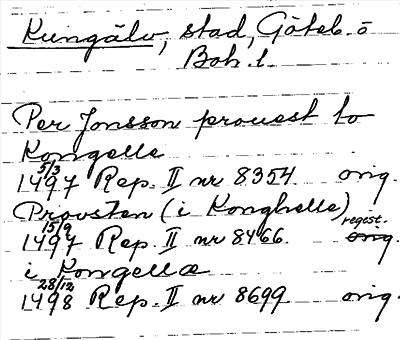 Kungälv, stad, Göteb. o
Boh. l.
Per Jonsson prouest to
Kongelle
5/3
1497 Rep. II nr 8354 orig.
Provsten (i Konghelle)
15/9 regest.
1497 Rep. II nr 8466. orig.
i Kongellæ
28/12
1498 Rep. II nr 8699 orig.